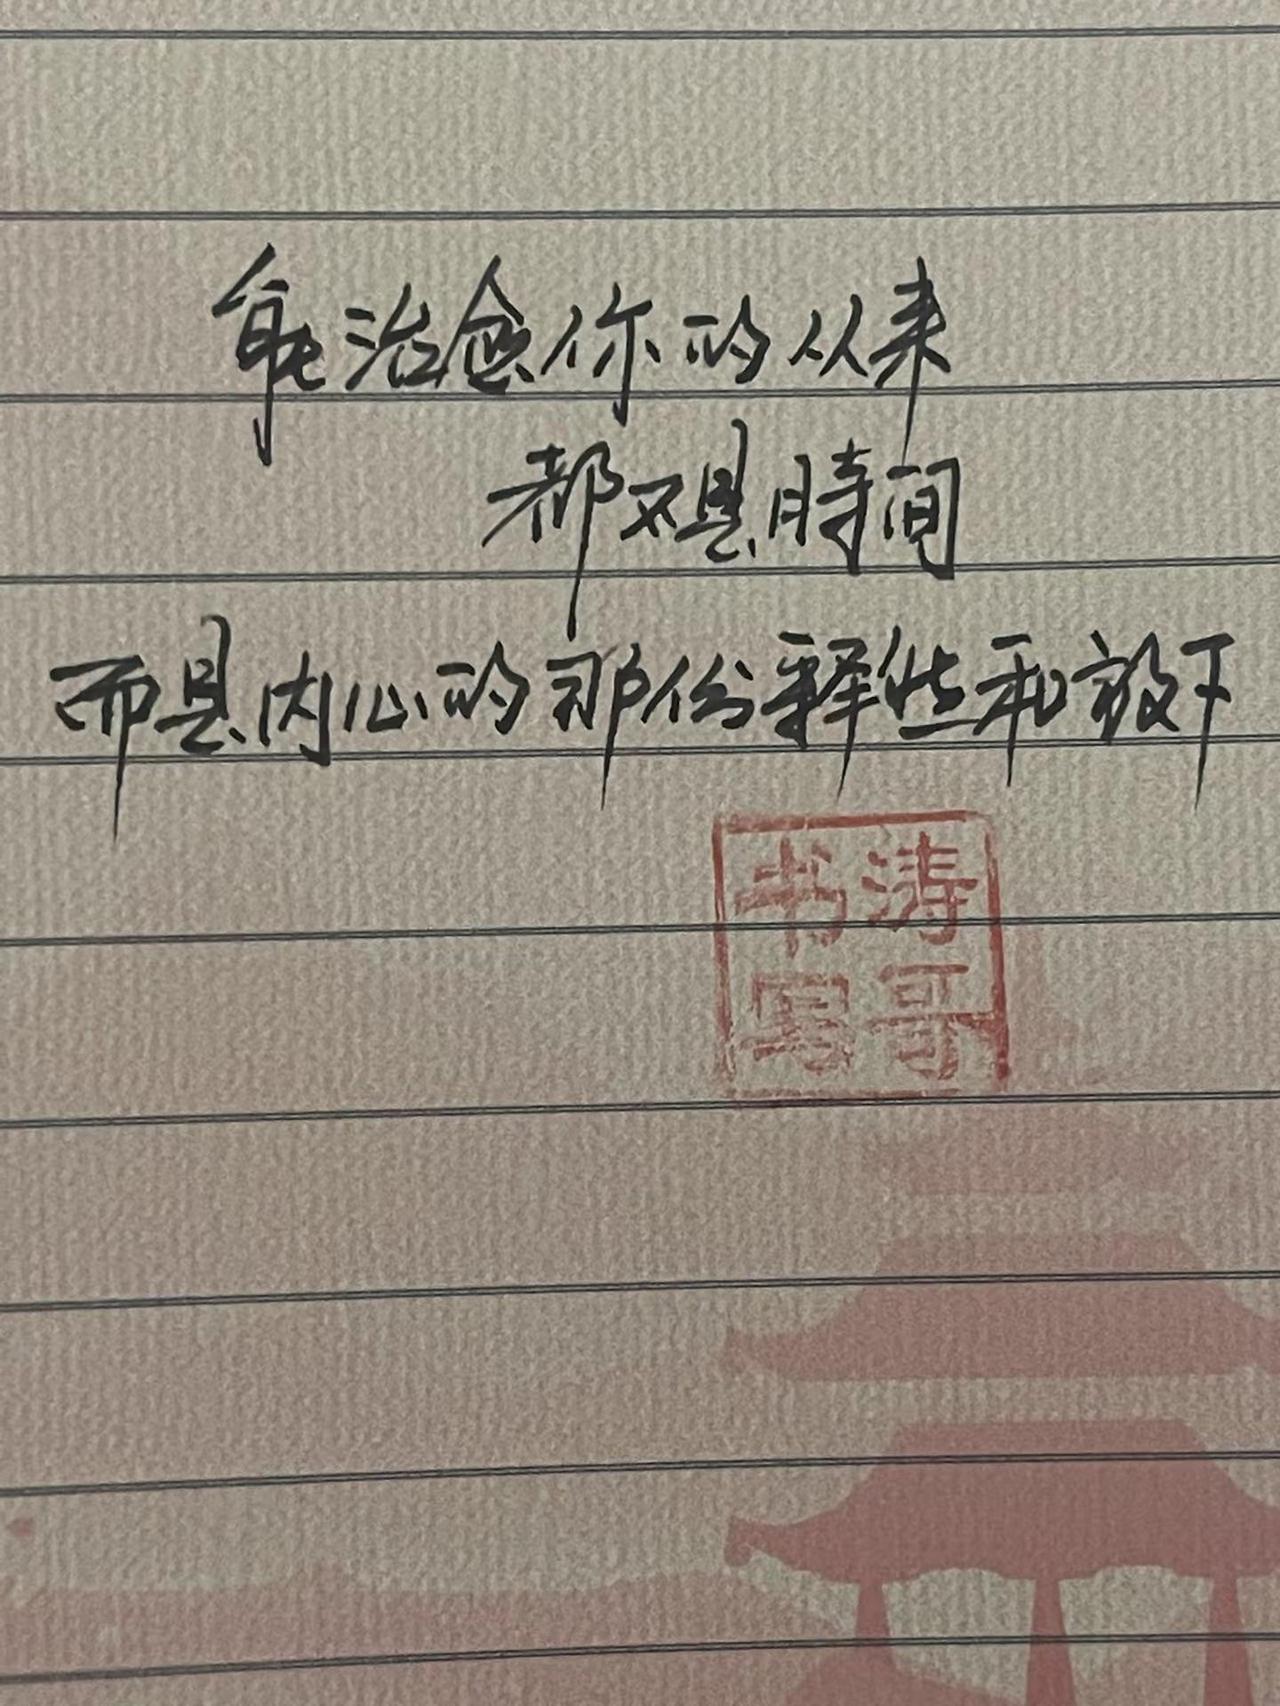 能治愈你的从来
都不是時间
而是内心的那份释然和放下
涛哥
书写